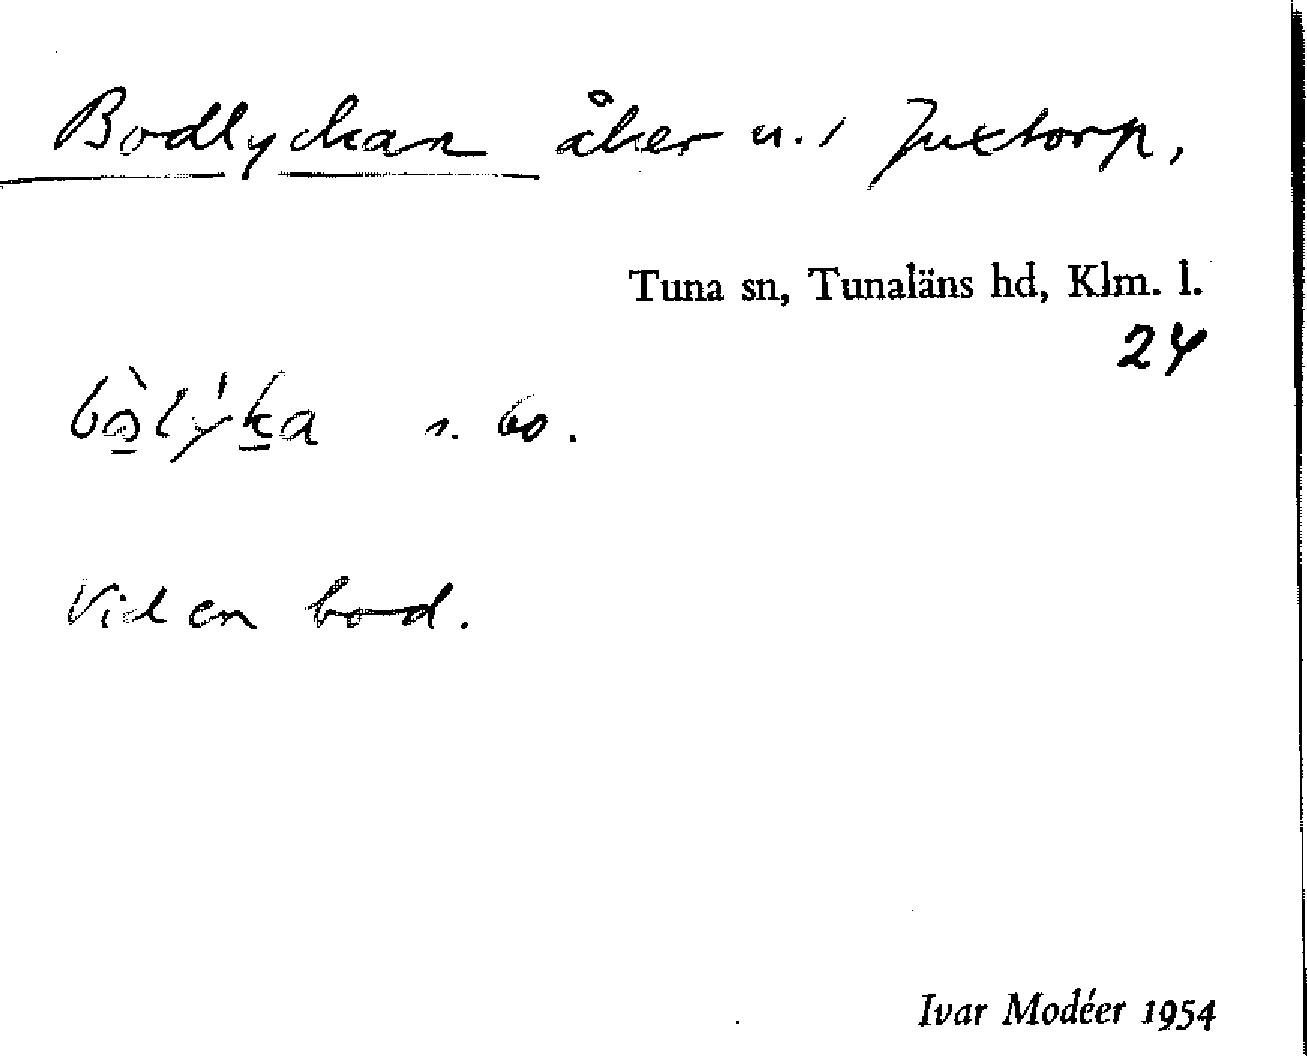 Bodlyckan åker u. / Juxtorp,
Tuna sn, Tunaläns hd, Klm. l.
24
bò̱lýḵa s. bo.
Vid en bod.
Ivar Modéer 1954